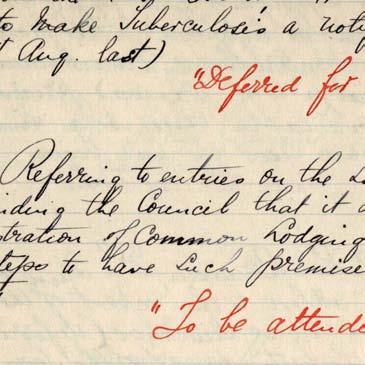 to make Tuberculosis a notif
Aug. last)
"Deferred for
Referring to entries on the
nding the Council that it
stration of Common Lodging
teps to have such premise
"To be attende